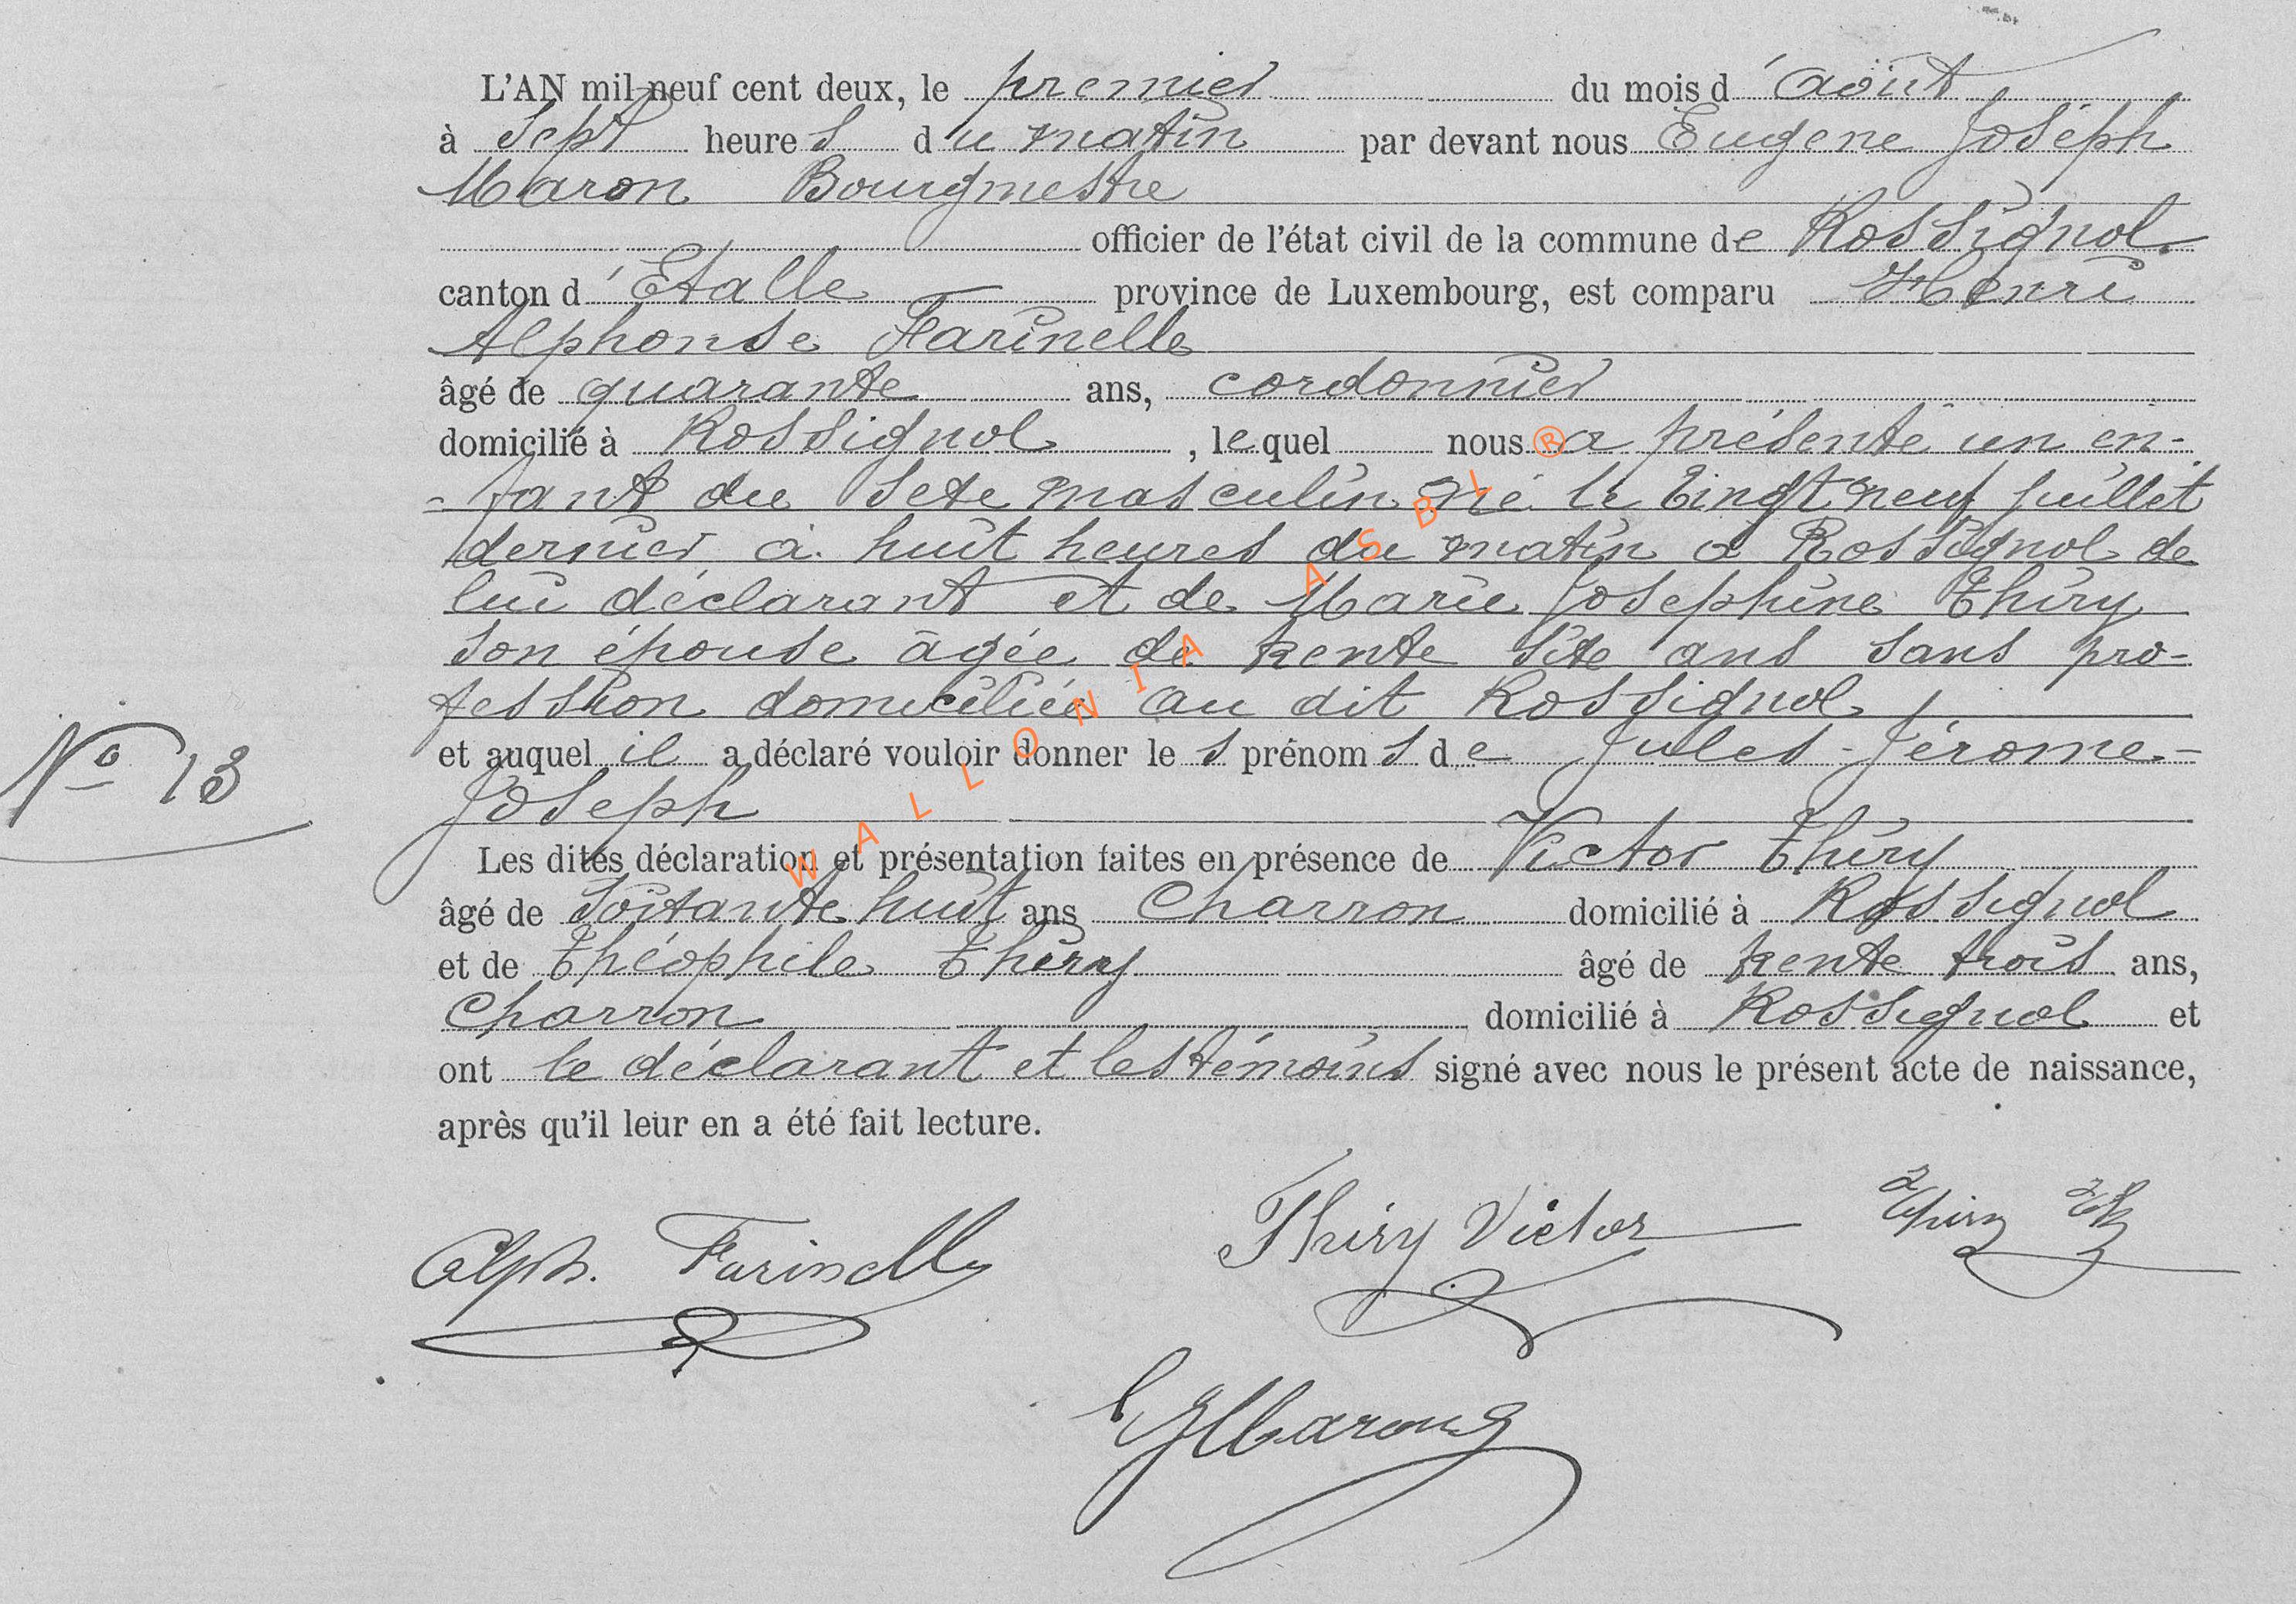 L'AN mil neuf cent deux, le premier du mois d'août
à sept heures du matin par devant nous Eugene Joseph
Maron Bourgmestre
officier de l'état civil de la commune de Rossignol
canton d'Etalle province de Luxembourg, est comparu Henri
Alphonse Farinelle
âgé de quarante ans, cordonnier
domicilié à Rossignol, lequel nous a présenté un en-
-fant du sexe masculin né le vingt neuf juillet
dernier à huit heures du matin à Rossignol de
lui déclarant et de Marie Josephine Thiry
son épouse âgée de trente six ans sans pro-
fession domiciliée au dit Rossignol
et auquel il a déclaré vouloir donner les prénoms de Jules-Jérome-
N° 13
Joseph
Les dites déclaration et présentation faites en présence de Victor Thiry
âgé de soixante huit ans Charron domicilié à Rossignol
et de Théophile Thiry âgé de trente trois ans,
Charron domicilié à Rossignol et
ont le déclarant et les témoins signé avec nous le présent acte de naissance,
après qu'il leur en a été fait lecture.
Alph. Farinelle Thiry Victor Thiry Th
EJMaron
WALLONIA ASBL ®